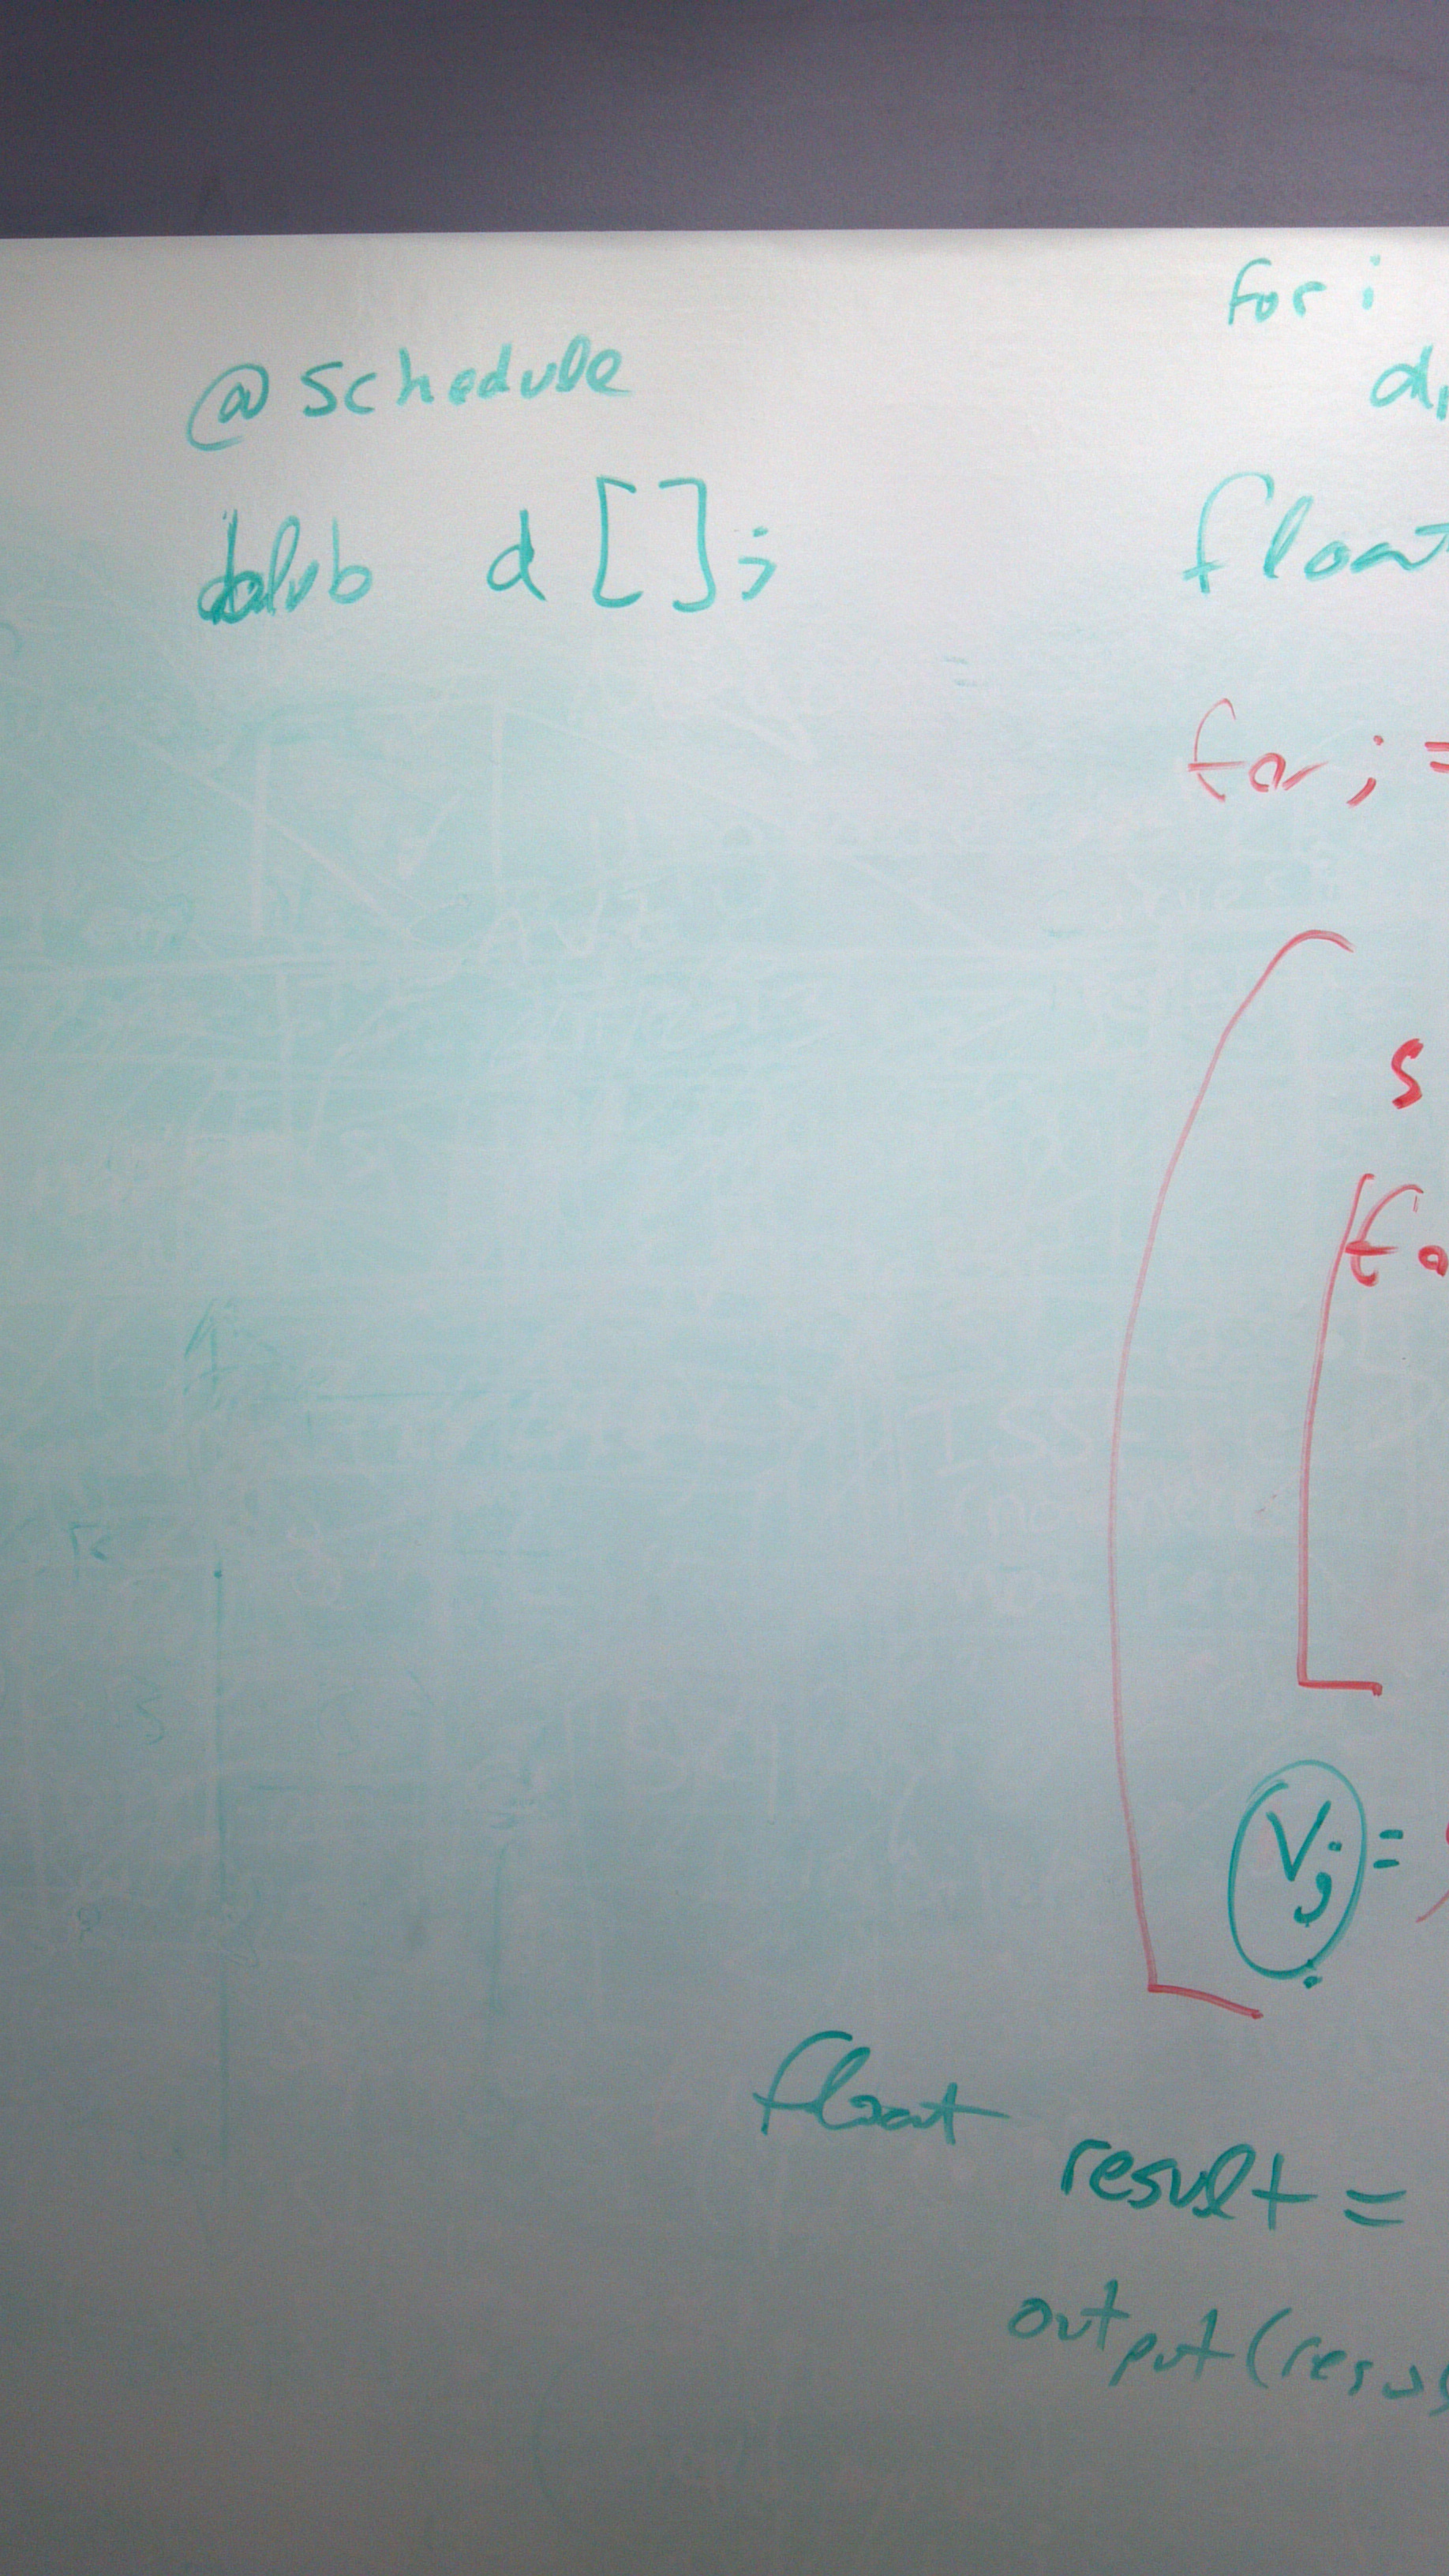 @schedule
d[];
for i
float
for j =
s
fo
Vj =
float
result =
output(resu